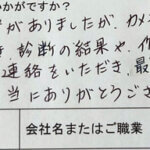 いかがですか？
がありましたが、カメ
診断の結果や、作
連絡をいただき、最
当にありがとうござ
会社名またはご職業